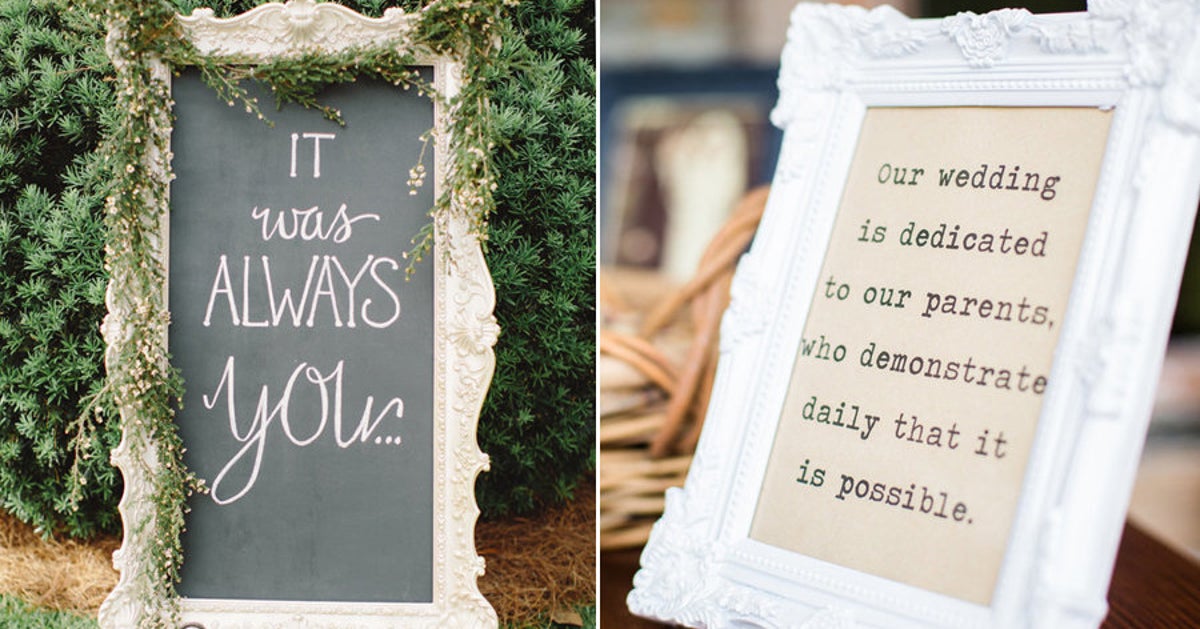 IT
was
ALWAYS
you...
Our wedding
is dedicated
to our parents,
who demonstrate
daily that it
is possible.